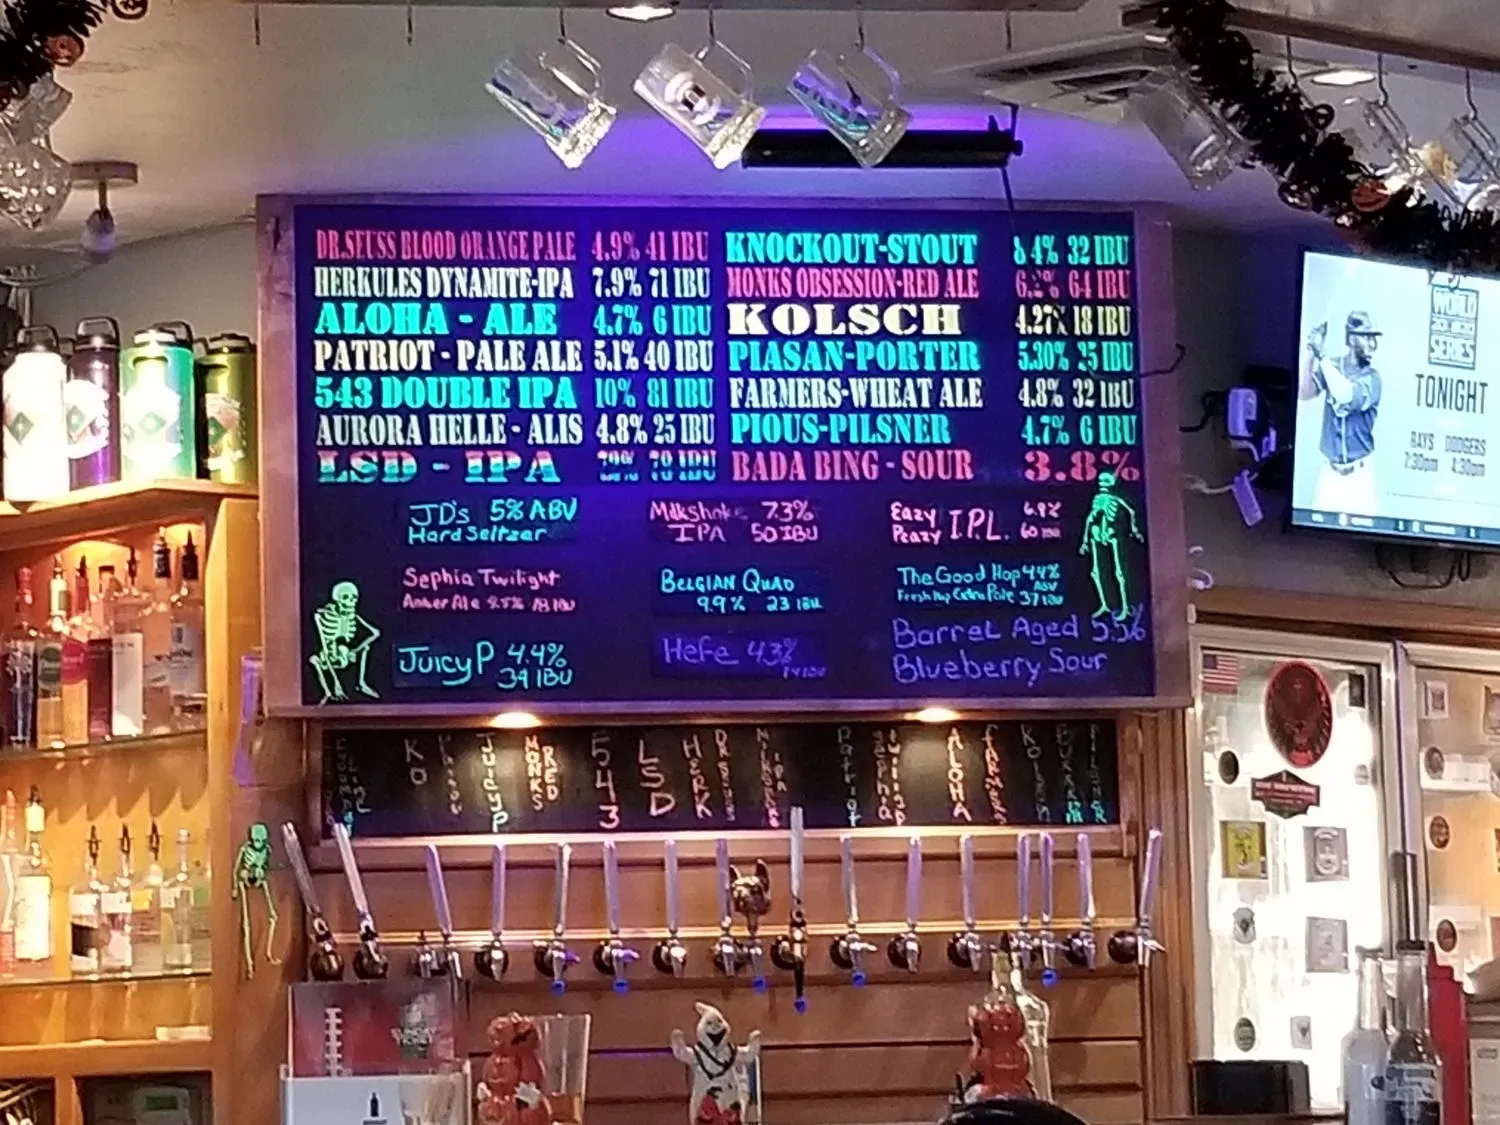 DR.SEUSS BLOOD ORANGE PALE 4.9% 41 IBU
HERKULES DYNAMITE-IPA 7.9% 71 IBU
ALOHA - ALE 4.7% 6 IBU
PATRIOT - PALE ALE 5.1% 40 IBU
543 DOUBLE IPA 10% 81 IBU
AURORA HELLE - ALIS 4.8% 25 IBU
LSD - IPA 78 IBU
KNOCKOUT-STOUT 8.4% 32 IBU
MONKS OBSESSION-RED ALE 64 IBU
KOLSCH 4.27% 18 IBU
PIASAN-PORTER 5.30% 25 IBU
FARMERS-WHEAT ALE 4.8% 32 IBU
PIOUS-PILSNER 4.7% 6 IBU
BADA BING - SOUR 3.8%
JD's 5% ABV
Hard Seltzer
Milkshake 7.3%
IPA 50 IBU
Eazy
Peazy I.P.L. 60 IBU
Sephia Twilight
Amber Ale 18 IBU
BELGIAN QUAD
9.9% 23 IBU
The Good Hop 4.4%
ABV
Fresh Hop Extra Pale 37 IBU
JuicyP 4.4%
34 IBU
HeFe 4.3%
14 IBU
Barrel Aged 5.5%
Blueberry Sour
KO
JuicyP
MONKS
RED
543
LSD
HERK
DR SEUSS
MILKSHAKE
IPA
Patriot
Sephia
Twilight
ALOHA
FARMERS
KOLSCH
WORLD
SERIES
TONIGHT
RAYS DODGERS
7:30pm 4:30pm